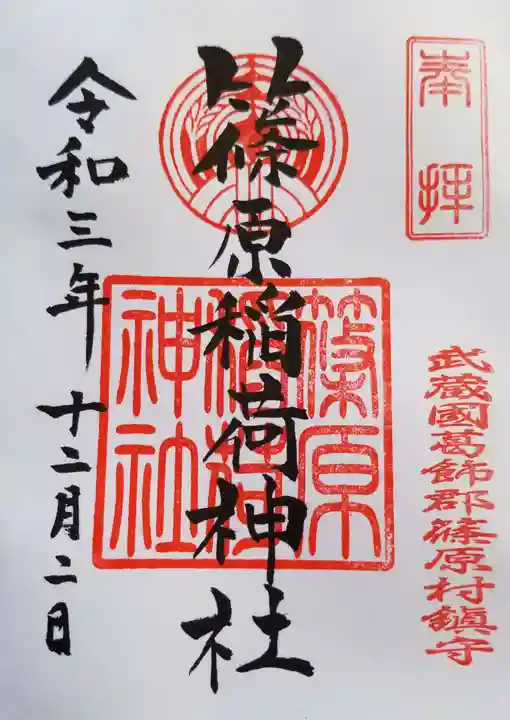 奉拝
武蔵國葛飾郡篠原村鎮守
篠原稲荷神社
篠原
稲荷
神社
令和三年十二月二日